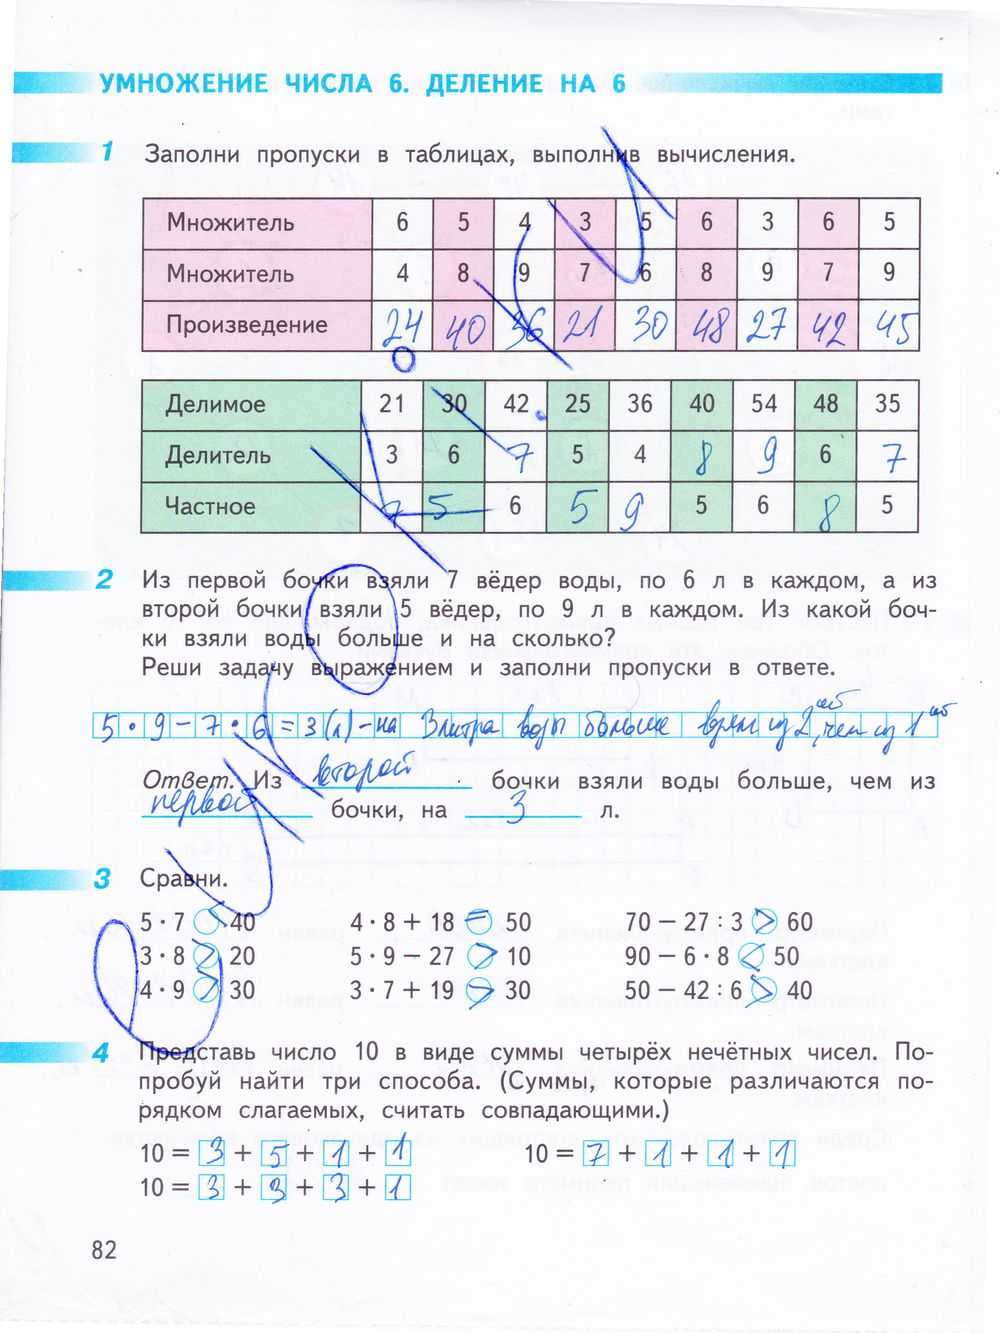 УМНОЖЕНИЕ ЧИСЛА 6. ДЕЛЕНИЕ НА 6
1 Заполни пропуски в таблицах, выполнив вычисления.
Множитель 6 5 4 3 5 6 3 6 5
Множитель 4 8 9 7 6 8 9 7 9
Произведение 24 40 36 21 30 48 27 42 45
Делимое 21 30 42 25 36 40 54 48 35
Делитель 3 6 7 5 4 8 9 6 7
Частное 7 5 6 5 9 5 6 8 5
2 Из первой бочки взяли 7 вёдер воды, по 6 л в каждом, а из
второй бочки взяли 5 вёдер, по 9 л в каждом. Из какой боч-
ки взяли воды больше и на сколько?
Реши задачу выражением и заполни пропуски в ответе.
5 · 9 − 7 · 6 = 3 (л) - на 3 литра воды больше взяли из 2ой, чем из 1ой
Ответ. Из второй бочки взяли воды больше, чем из
первой бочки, на 3 л.
3 Сравни.
5 · 7 < 40 4 · 8 + 18 = 50 70 − 27 : 3 > 60
3 · 8 > 20 5 · 9 − 27 > 10 90 − 6 · 8 < 50
4 · 9 > 30 3 · 7 + 19 > 30 50 − 42 : 6 > 40
4 Представь число 10 в виде суммы четырёх нечётных чисел. По-
пробуй найти три способа. (Суммы, которые различаются по-
рядком слагаемых, считать совпадающими.)
10 = 3 + 5 + 1 + 1 10 = 7 + 1 + 1 + 1
10 = 3 + 3 + 3 + 1
82